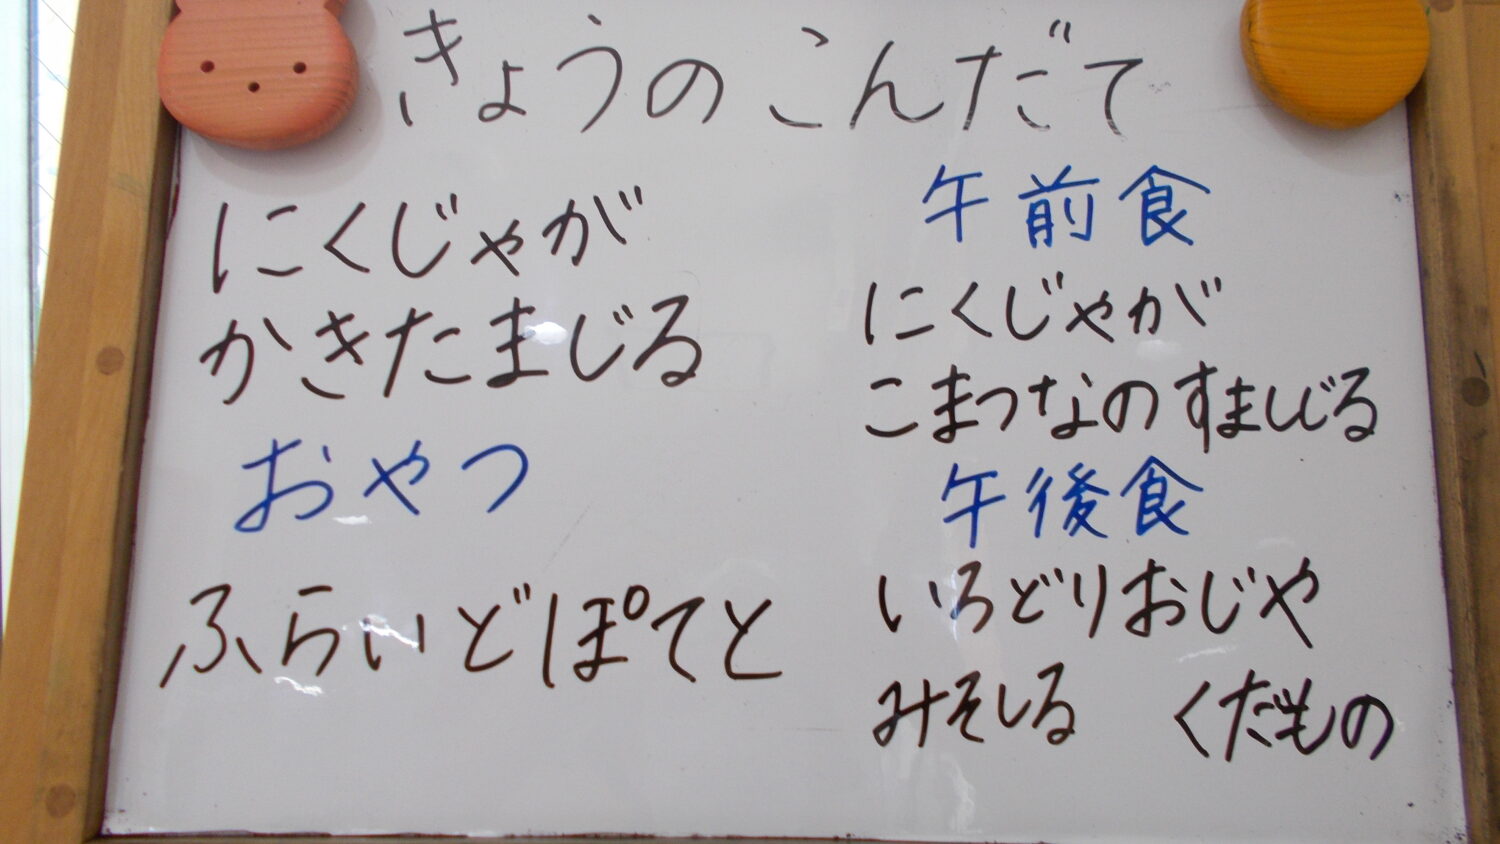 きょうの こんだて
にくじゃが
かきたまじる
おやつ
ふらいどぽてと
午前食
にくじゃが
こまつなのすましじる
午後食
いろどりおじや
みそしる くだもの